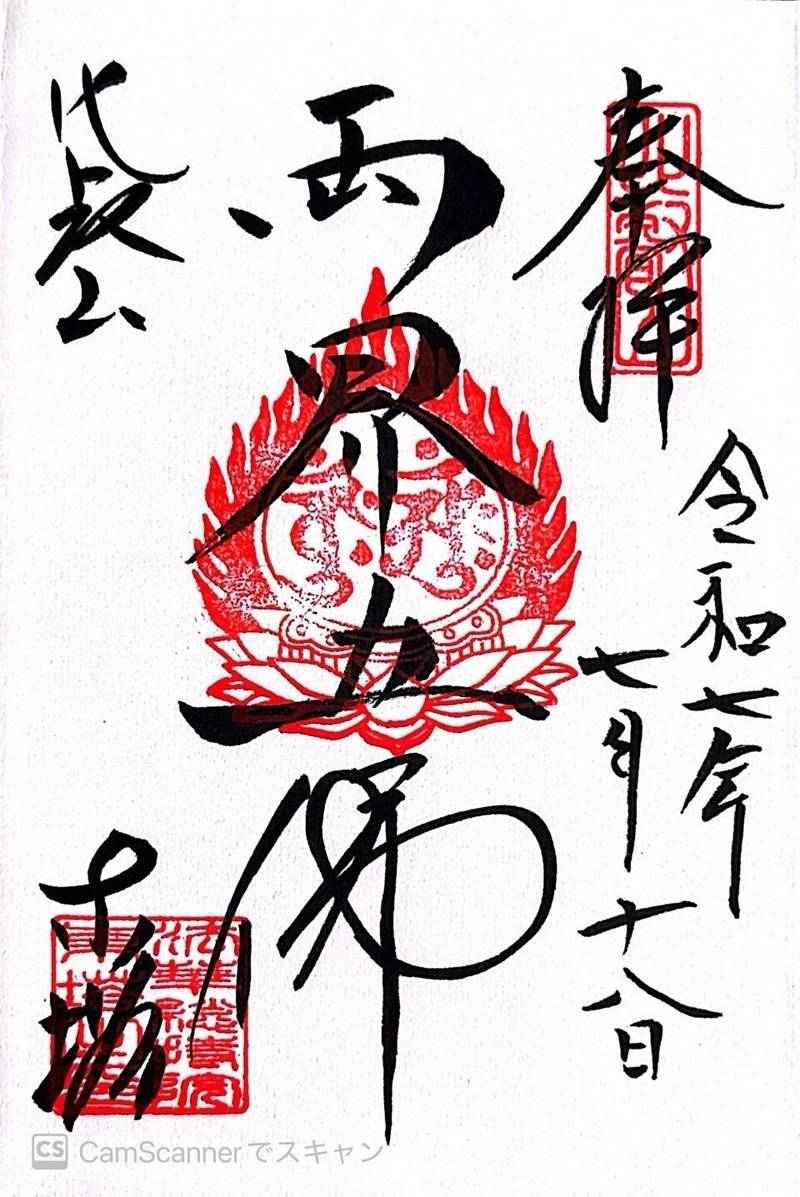 奉拝
令和七年
七月十八日
両界五佛
比叡山
東塔
CS CamScannerでスキャン